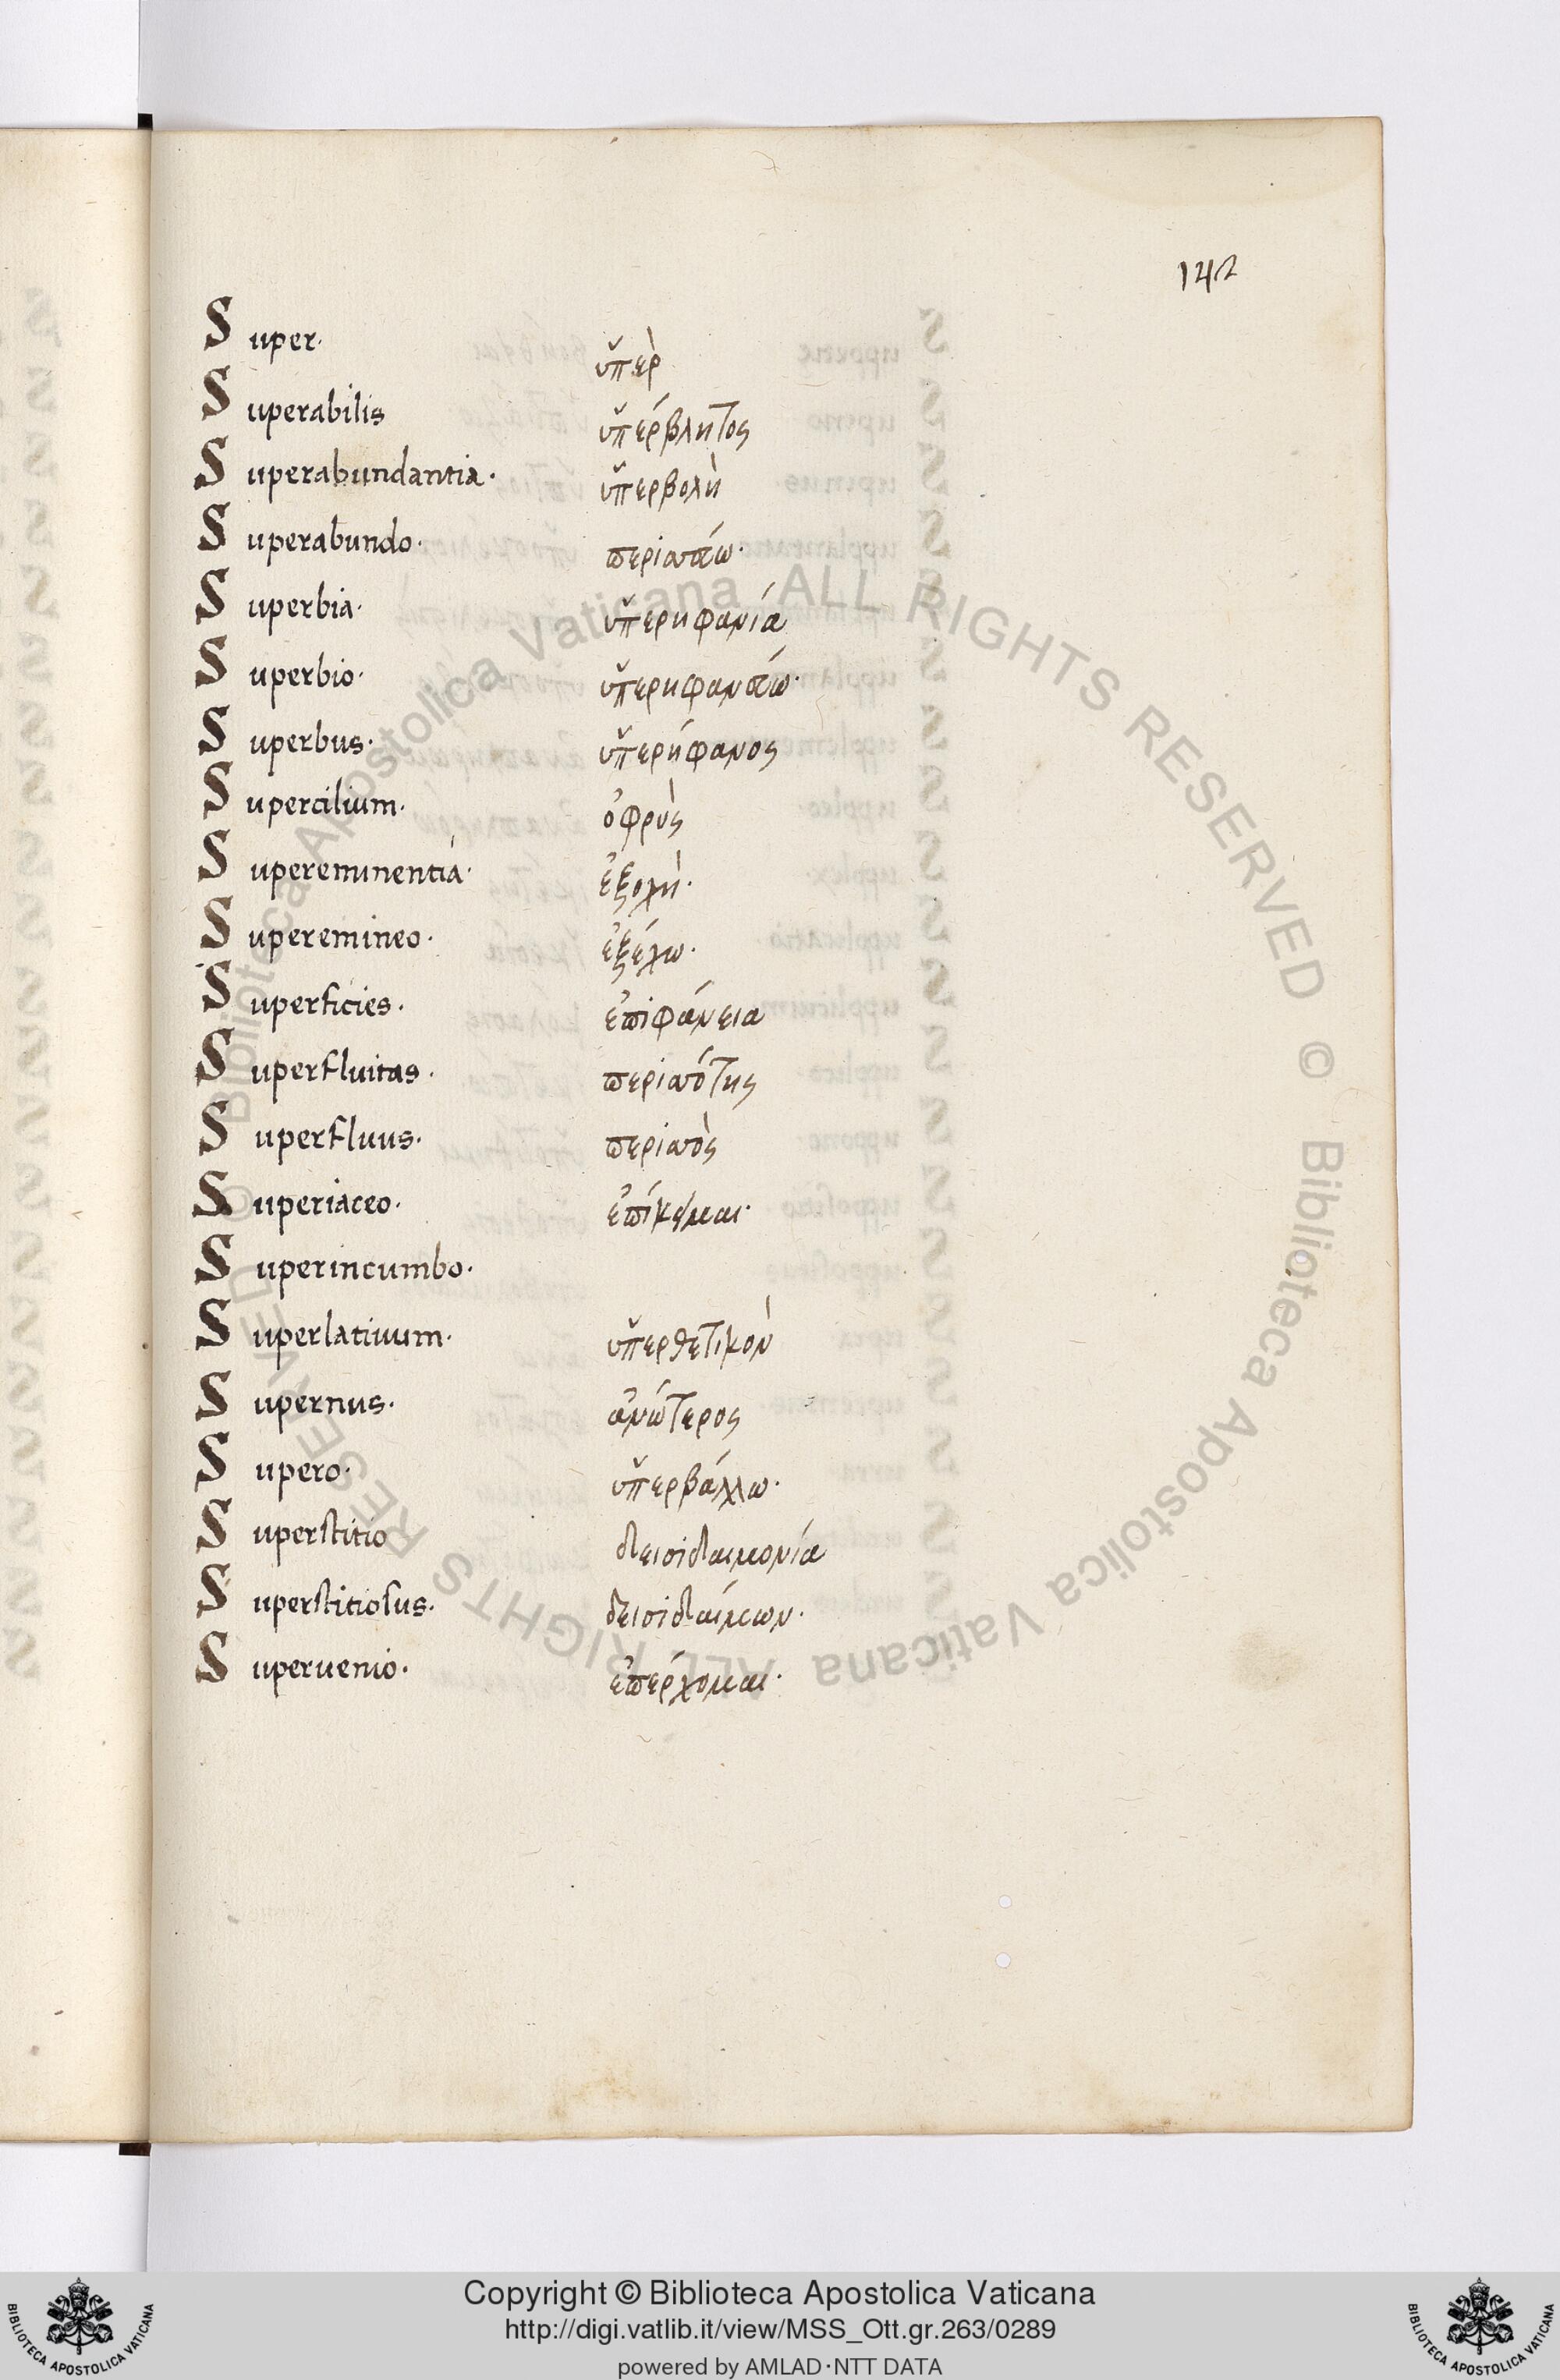 142
Super· ὑπὲρ
Superabilis ὑπέρβλητος
Superabundantia· ὑπερβολὴ
Superabundo· περισσέω·
Superbia· ὑπερηφανία
Superbio· ὑπερηφανέω·
Superbus· ὑπερήφανος
Supercilium· ὀφρὺς
Supereminentia· ἐξοχὴ·
Superemineo· ἐξέχω·
Superficies· ἐπιφάνεια
Superfluitas· περισσότης
Superfluus· περισσὸς
Superiaceo· ἐπίκειμαι·
Superincumbo·
Superlativum· ὑπερθετικὸν
Supernus· ἀνώτερος
Supero· ὑπερβάλλω·
Superstitio δεισιδαιμονία
Superstitiosus· δεισιδαίμων·
Superuenio· ἐπέρχομαι·
Biblioteca Apostolica Vaticana ALL RIGHTS RESERVED © Biblioteca Apostolica Vaticana ALL RIGHTS RESERVED ©
Copyright © Biblioteca Apostolica Vaticana
http://digi.vatlib.it/view/MSS_Ott.gr.263/0289
powered by AMLAD·NTT DATA
BIBLIOTECA APOSTOLICA VATICANA
BIBLIOTECA APOSTOLICA VATICANA